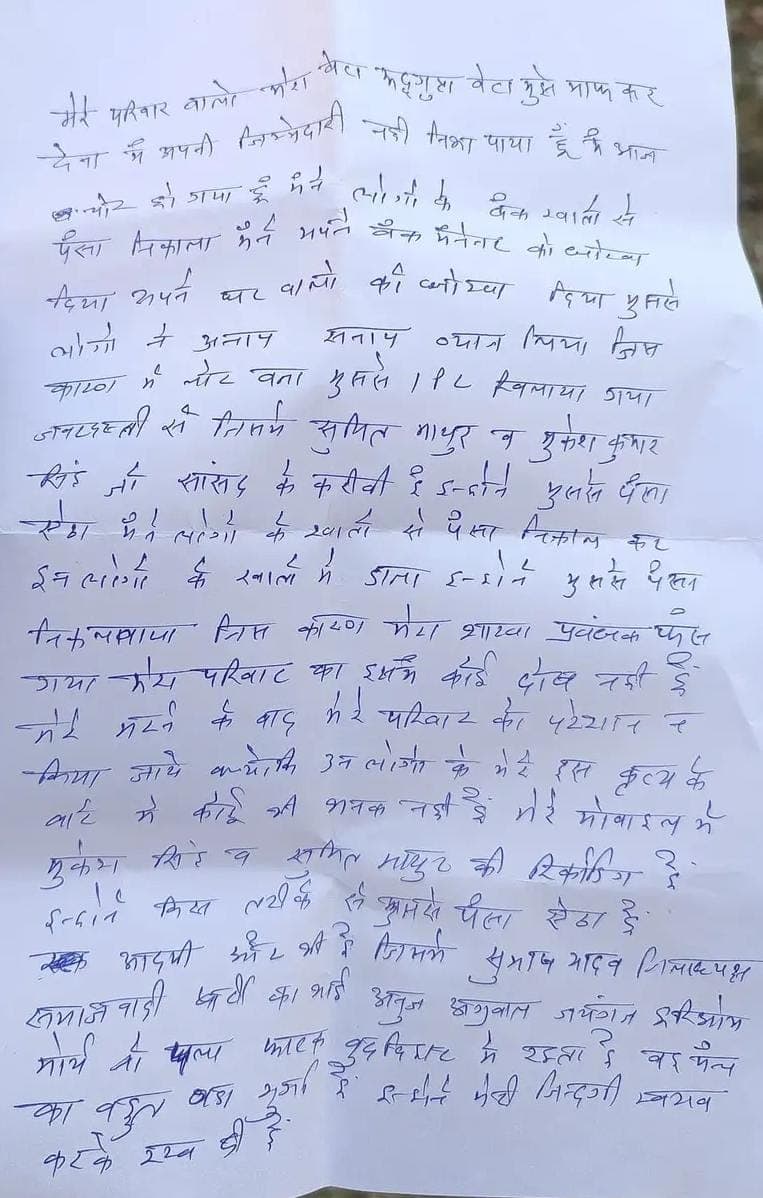 मेरे परिवार वालो मेरा बेटा बेटा मुझे माफ कर
देना मैं अपनी जिम्मेदारी नही निभा पाया हूँ मैं आज
चोर हो गया हूँ मैने लोगो के बैंक खातो से
पैसा निकाला मैने अपने बैंक मैनेजर को धोखा
दिया अपने घर वालो को धोखा दिया मुझसे
लोगो ने अनाप सनाप ब्याज लिया जिस
कारण मैं चोर बना मुझसे IPL खिलाया गया
जबरदस्ती से जिसमे सुमित माथुर व मुकेश कुमार
सिंह जो सांसद के करीबी है इन्होने मुझसे पैसा
ऐठा मैने लोगो के खातो से पैसा निकाल कर
इन लोगो के खाते मे डाला इन्होने मुझसे पैसा
निकलवाया जिस कारण मेरा शाखा प्रबंधक फंस
गया मेरा परिवार का इसमे कोई दोष नही है
मेरे मरने के बाद मेरे परिवार को परेशान न
किया जाये क्योकि उन लोगो के मेरे इस कृत्य के
बारे मे कोई भी भनक नही है मेरे मोबाइल मे
मुकेश सिंह व सुमित माथुर की रिकोर्डिंग है
इन्होने किस तरीके से मुझसे पैसा ऐठा है
आदमी और भी है जिसमे सुभाष यादव जिलाध्यक्ष
समाजवादी पार्टी का भाई अनुज अग्रवाल जयगंज हरिओम
मोर्य जो पला फाटक बुद्धविहार मे रहता है वह मैच
का बहुत बडा मुर्गा है इन्होने मेरी जिन्दगी खराब
करके रख दी है